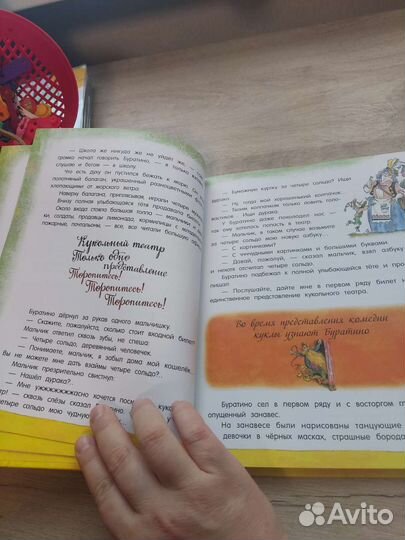 — Школа же никуда же не уйдёт же, —
громко начал говорить Буратино, — я только
слушаю и бегом — в школу.
Что есть духу он пустился бежать к морю.
полотняный балаган, украшенный разноцветными
хлопающими от морского ветра.
Наверху балагана, приплясывая, играли четыре
Внизу полная улыбающаяся тётя продавала билеты.
Около входа стояла большая толпа —
ки, солдаты, продавцы лимонада, кормилицы с
пожарные, почтальоны, — все, все читали большую
Кукольный театр
Только одно
представление
Торопитесь!
Торопитесь!
Торопитесь!
Буратино дёрнул за рукав одного мальчишку:
— Скажите, пожалуйста, сколько стоит входной билет?
Мальчик ответил сквозь зубы, не спеша:
— Четыре сольдо, деревянный человечек.
— Понимаете, мальчик, я забыл дома мой кошелёк.
Вы не можете мне дать взаймы четыре сольдо?..
Мальчик презрительно свистнул:
— Нашёл дурака!..
— Мне ужжжжжжжасно хочется
— сквозь слёзы сказал
четыре сольдо мою чудную
— Бумажную куртку за четыре сольдо? Ищи
дурака.
— Ну, тогда мой хорошенький колпачок...
колпаком только ловить
Ищи дурака.
У Буратино даже похолодел нос —
так ему хотелось попасть в театр.
— Мальчик, в таком случае возьмите
за четыре сольдо мою новую азбуку...
— С картинками?
— С чччудными картинками и большими буквами.
— Давай, пожалуй, — сказал мальчик, взял азбуку
и нехотя отсчитал четыре сольдо.
Буратино подбежал к полной улыбающейся тёте и
— Послушайте, дайте мне в первом ряду билет на
единственное представление кукольного театра.
Во время представления комедии
куклы узнают Буратино
Буратино сел в первом ряду и с восторгом
опущенный занавес.
На занавесе были нарисованы танцующие
девочки в чёрных масках, страшные
Avito